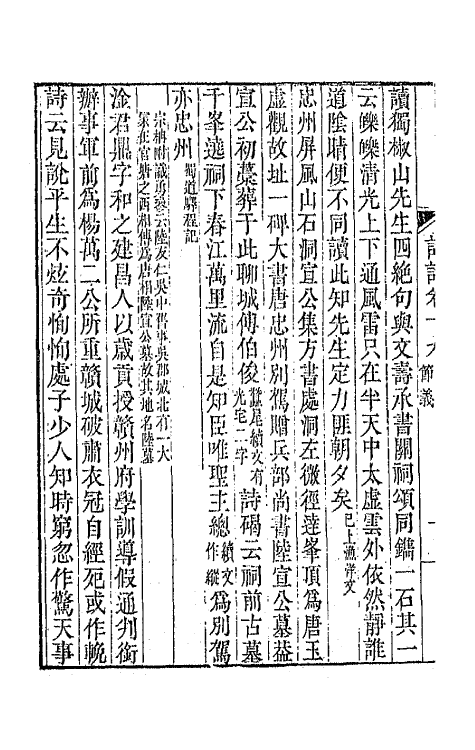 詩話卷十六 節義
讀獨椒山先生四絕句與文壽承書關祠頌同鐫一石其一
云皪皪清光上下通風雷只在半天中太虛雲外依然靜誰
道陰晴便不同讀此知先生定力匪朝夕矣已上漁洋文
忠州屏風山石洞宣公集方書處洞左微徑達峯頂為唐玉
虛觀故址一碑大書唐忠州別駕贈兵部尚書陸宣公墓葢
宣公初藁葬于此聊城傅伯俊蠶尾續文有光宅二字詩碣云祠前古墓
千峯遶祠下春江萬里流自是知臣唯聖主總續文作縱為別駕
亦忠州蜀道驛程記
宗柟附識承參云陸友仁吳中舊事吳郡城北有一大
冢在官塘之西相傳為唐相陸宣公墓故其地名陸墓
淦君鼎字和之建昌人以歲貢授贛州府學訓導假通判銜
辦事軍前為楊萬二公所重贛城破肅衣冠自經死或作輓
詩云見說平生不炫奇恂恂處子少人知時窮忽作驚天事